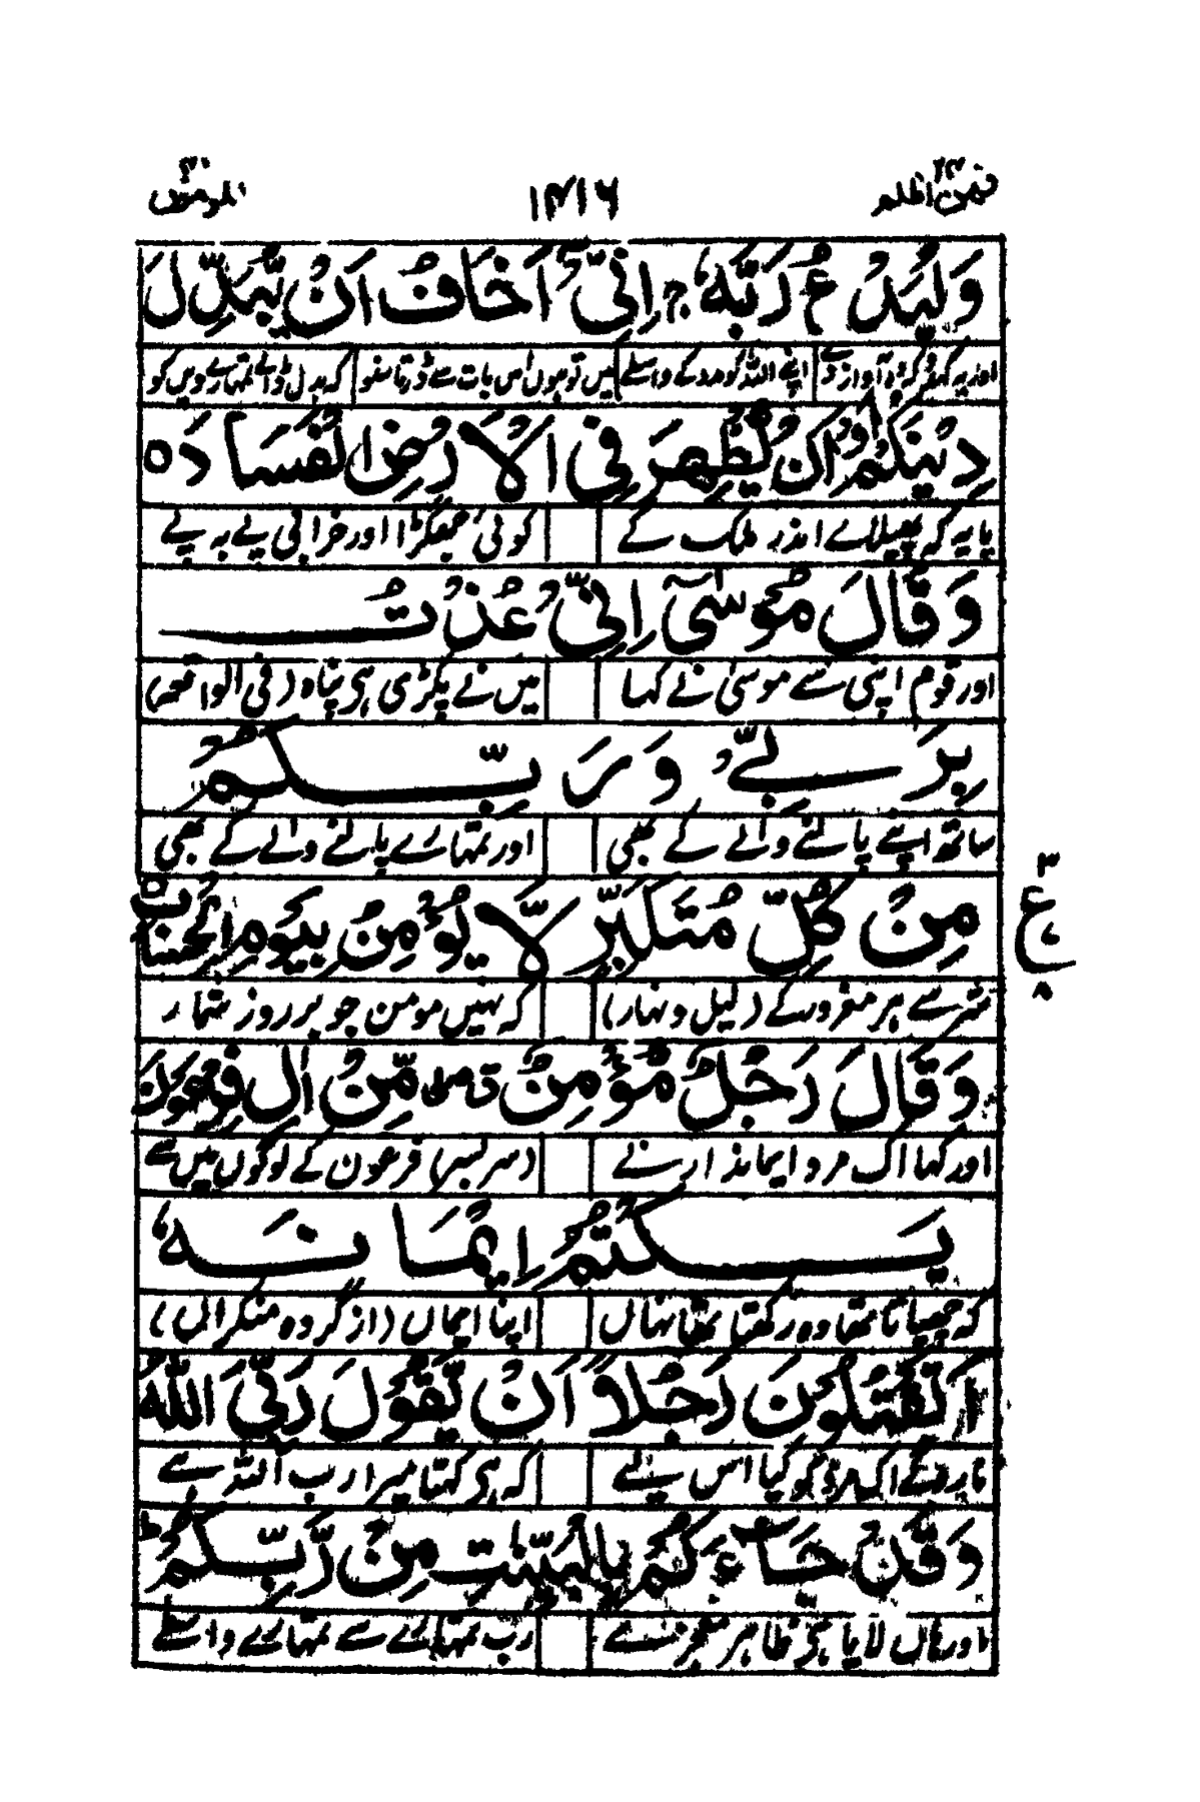 فمن اظلم ۲۴ ۱۴۱۶ المومن ۴۰
وَلْيَدْعُ رَبَّهٗ ج اِنِّیْۤ اَخَافُ اَنْ یُّبَدِّلَ
اور یہ کہ آواز دے اپنے اللہ کو مدد کے واسطے میں تو ہوں اس بات سے ڈرتا کہ بدل ڈالے تمہارے دیں کو
دِیْنَكُمْ اَوْ اَنْ یُّظْهِرَ فِی الْاَرْضِ الْفَسَادَ ○
یا یہ کہ پھیلائے اندر ملک کے کوئی جھگڑا اور خرابی پے بہ پے
وَقَالَ مُوْسٰۤی اِنِّیْ عُذْتُ
اور قوم اپنی سے موسیٰ نے کہا میں نے پکڑی ہی پناہ (فی الواقعہ)
بِرَبِّیْ وَرَبِّكُمْ
ساتھ اپنے پالنے والے کے بھی اور تمہارے پالنے والے کے بھی
مِنْ كُلِّ مُتَكَبِّرٍ لَّا یُؤْمِنُ بِیَوْمِ الْحِسَابِ ○
شر سے ہر مغرور کے (لیل و نہار) کہ نہیں مومن جو بر روز شمار
۳ ع ۸
وَقَالَ رَجُلٌ مُّؤْمِنٌ مِّنْ اٰلِ فِرْعَوْنَ
اور کہا اک مرد ایماندار نے (سر بسر) فرعون کے لوگوں میں سے
یَكْتُمُ اِیْمَانَهٗۤ
کہ چھپاتا تھا وہ رکھتا تھا نہاں اپنا ایماں (از گروہ منکراں)
اَتَقْتُلُوْنَ رَجُلًا اَنْ یَّقُوْلَ رَبِّیَ اللّٰهُ
اک مرد کو کیا اس لیے کہ ہی کہتا میرا رب اللہ ہے
وَقَدْ جَآءَكُمْ بِالْبَیِّنٰتِ مِنْ رَّبِّكُمْ ط
اور ہاں لایا ہی ظاہر معجزے رب تمہارے سے تمہارے واسطے